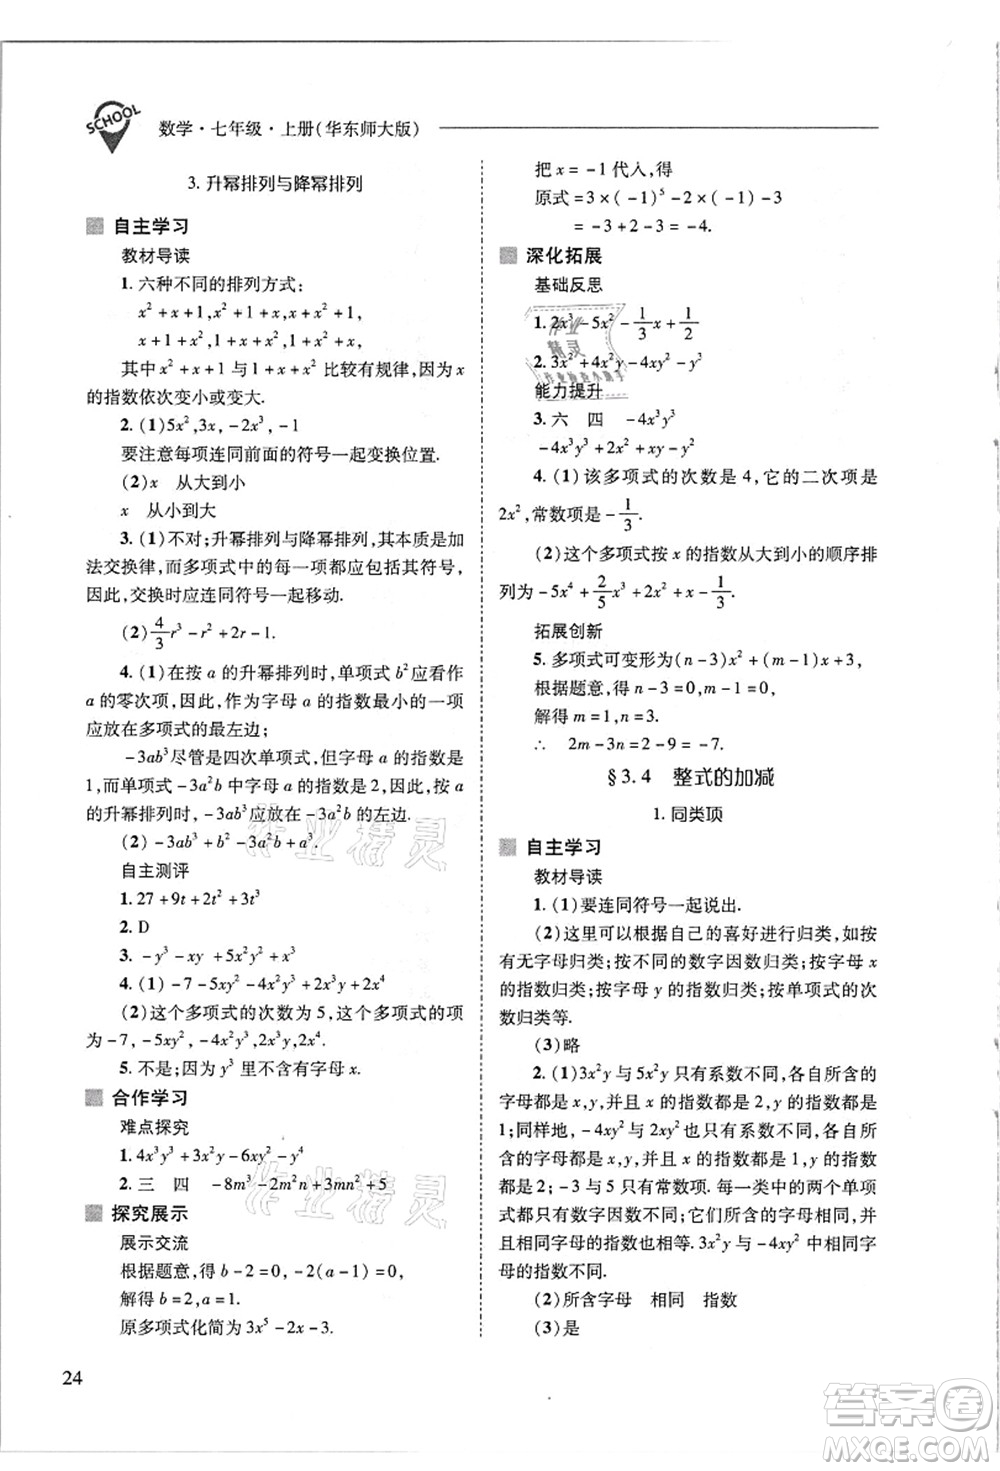 SCHOOL
数学·七年级·上册(华东师大版)
3. 升幂排列与降幂排列
自主学习
教材导读
1. 六种不同的排列方式:
x²+x+1,x²+1+x,1+x+x²,
x+1+x²,1+x²+x,x+x²+1.
其中x²+x+1与1+x+x² 比较有规律,因为x
的指数依次变小或变大.
2. (1)5x²,3x,-2x³,-1
要注意每项连同前面的符号一起变换位置.
(2)x 从大到小
x 从小到大
3. (1)不对;升幂排列与降幂排列,其本质是加
法交换律,而多项式中的每一项都应包括其符号,
因此,交换时应连同符号一起移动.
(2)4/3r³-r²+2r-1.
4. (1)在按 a 的升幂排列时,单项式 b²应看作
a 的零次项,因此,作为字母 a 的指数最小的一项
应放在多项式的最左边;
-3ab³尽管是四次单项式,但字母 a 的指数是
1,而三次单项式-3a²b 中字母 a 的指数是2,按 a
的升幂排列时,-3ab³应放在-3a²b的前面.
(2)-3ab³+b²-3a²b+a³.
自主测评
1. 27+9t+2t²+t³
2. D
3. -y³-xy+5x²y+x³
4. (1)-7-5xy²-4x²y³+2x⁴
(2)这个多项式的次数为5,这个多项式的项
为-7,-5xy²,-4x²y³,2x⁴.
5. 不是;因为y³里不含有字母x.
合作学习
难点探究
1. 4x³y³+3x²y-6xy²-y⁴
2. 三 四 -8m³-2m²n+3mn²+5
探究展示
展示交流
根据题意,得 b-2=0,-2(a-1)=0.
解得 b=2,a=1.
原多项式化简为3x⁵-2x-3.
24
把 x=-1代入,得
原式=3×(-1)⁵-2×(-1)-3
=-3+2-3=-4.
深化拓展
基础反思
1. 2x³-5x²-1/3x+1/2
2. 3x²+4x²y-4xy²-y³
能力提升
3. 六 四 -4x³y³
-4x³y³+5x²-xy-4
4. (1)该多项式的次数是4,它的二次项是
2x²,常数项是-1/3.
(2)这个多项式按x的指数从大到小的顺序排
列为-5x⁴+2/5x³+2x²+x-1/3.
拓展创新
5. 多项式可变形为(n-3)x²+(m-1)x+3,
根据题意,得n-3=0,m-1=0,
解得 m=1,n=3.
∴ 2m-3n=2-9=-7.
§3.4 整式的加减
1. 同类项
自主学习
教材导读
1. (1)要连同符号一起说出.
(2)这里可以根据自己的喜好进行归类,如按
有无字母归类;按不同的数字因数归类;按字母x
的指数归类;按字母 y 的指数归类;按单项式的次
数归类等.
(3)略
2. (1)3x²y与5x²y只有系数不同,各自所含的
字母都是x,y,并且x的指数都是2,y的指数都是
1;同样地,-4xy²与2xy²也只有系数不同,各自所
含的字母都是x,y,并且x的指数都是1,y的指数都
是2;-3与5只有常数项. 每一类中的两个单项
式都只有数字因数不同;它们所含的字母相同,并
且相同字母的指数也相等. 3x²y与-4xy²中相同字
母的指数不同.
(2)所含字母 相同 指数
(3)是
作业精灵
作业精灵
作业精灵
答案圈
MXQE.COM